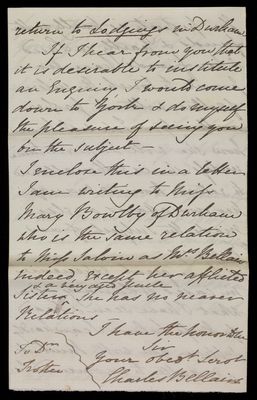 return to Lodgings in Durham
If I hear from you, that
it is desirable to institute
an Enquiry I would come
down to York & do myself
the pleasure of seeing you
on the subject —
I enclose this in a letter
I am writing to Miss
Mary Bowlby of Durham
who is the same relation
to Miss Salvin as Mrs. Bellairs
Indeed except her afflicted
& a very aged Uncle
Sister, She has no nearer
Relations
I have the honor to be
Sir
Your obedt Servt
Charles Bellairs
To Dr.